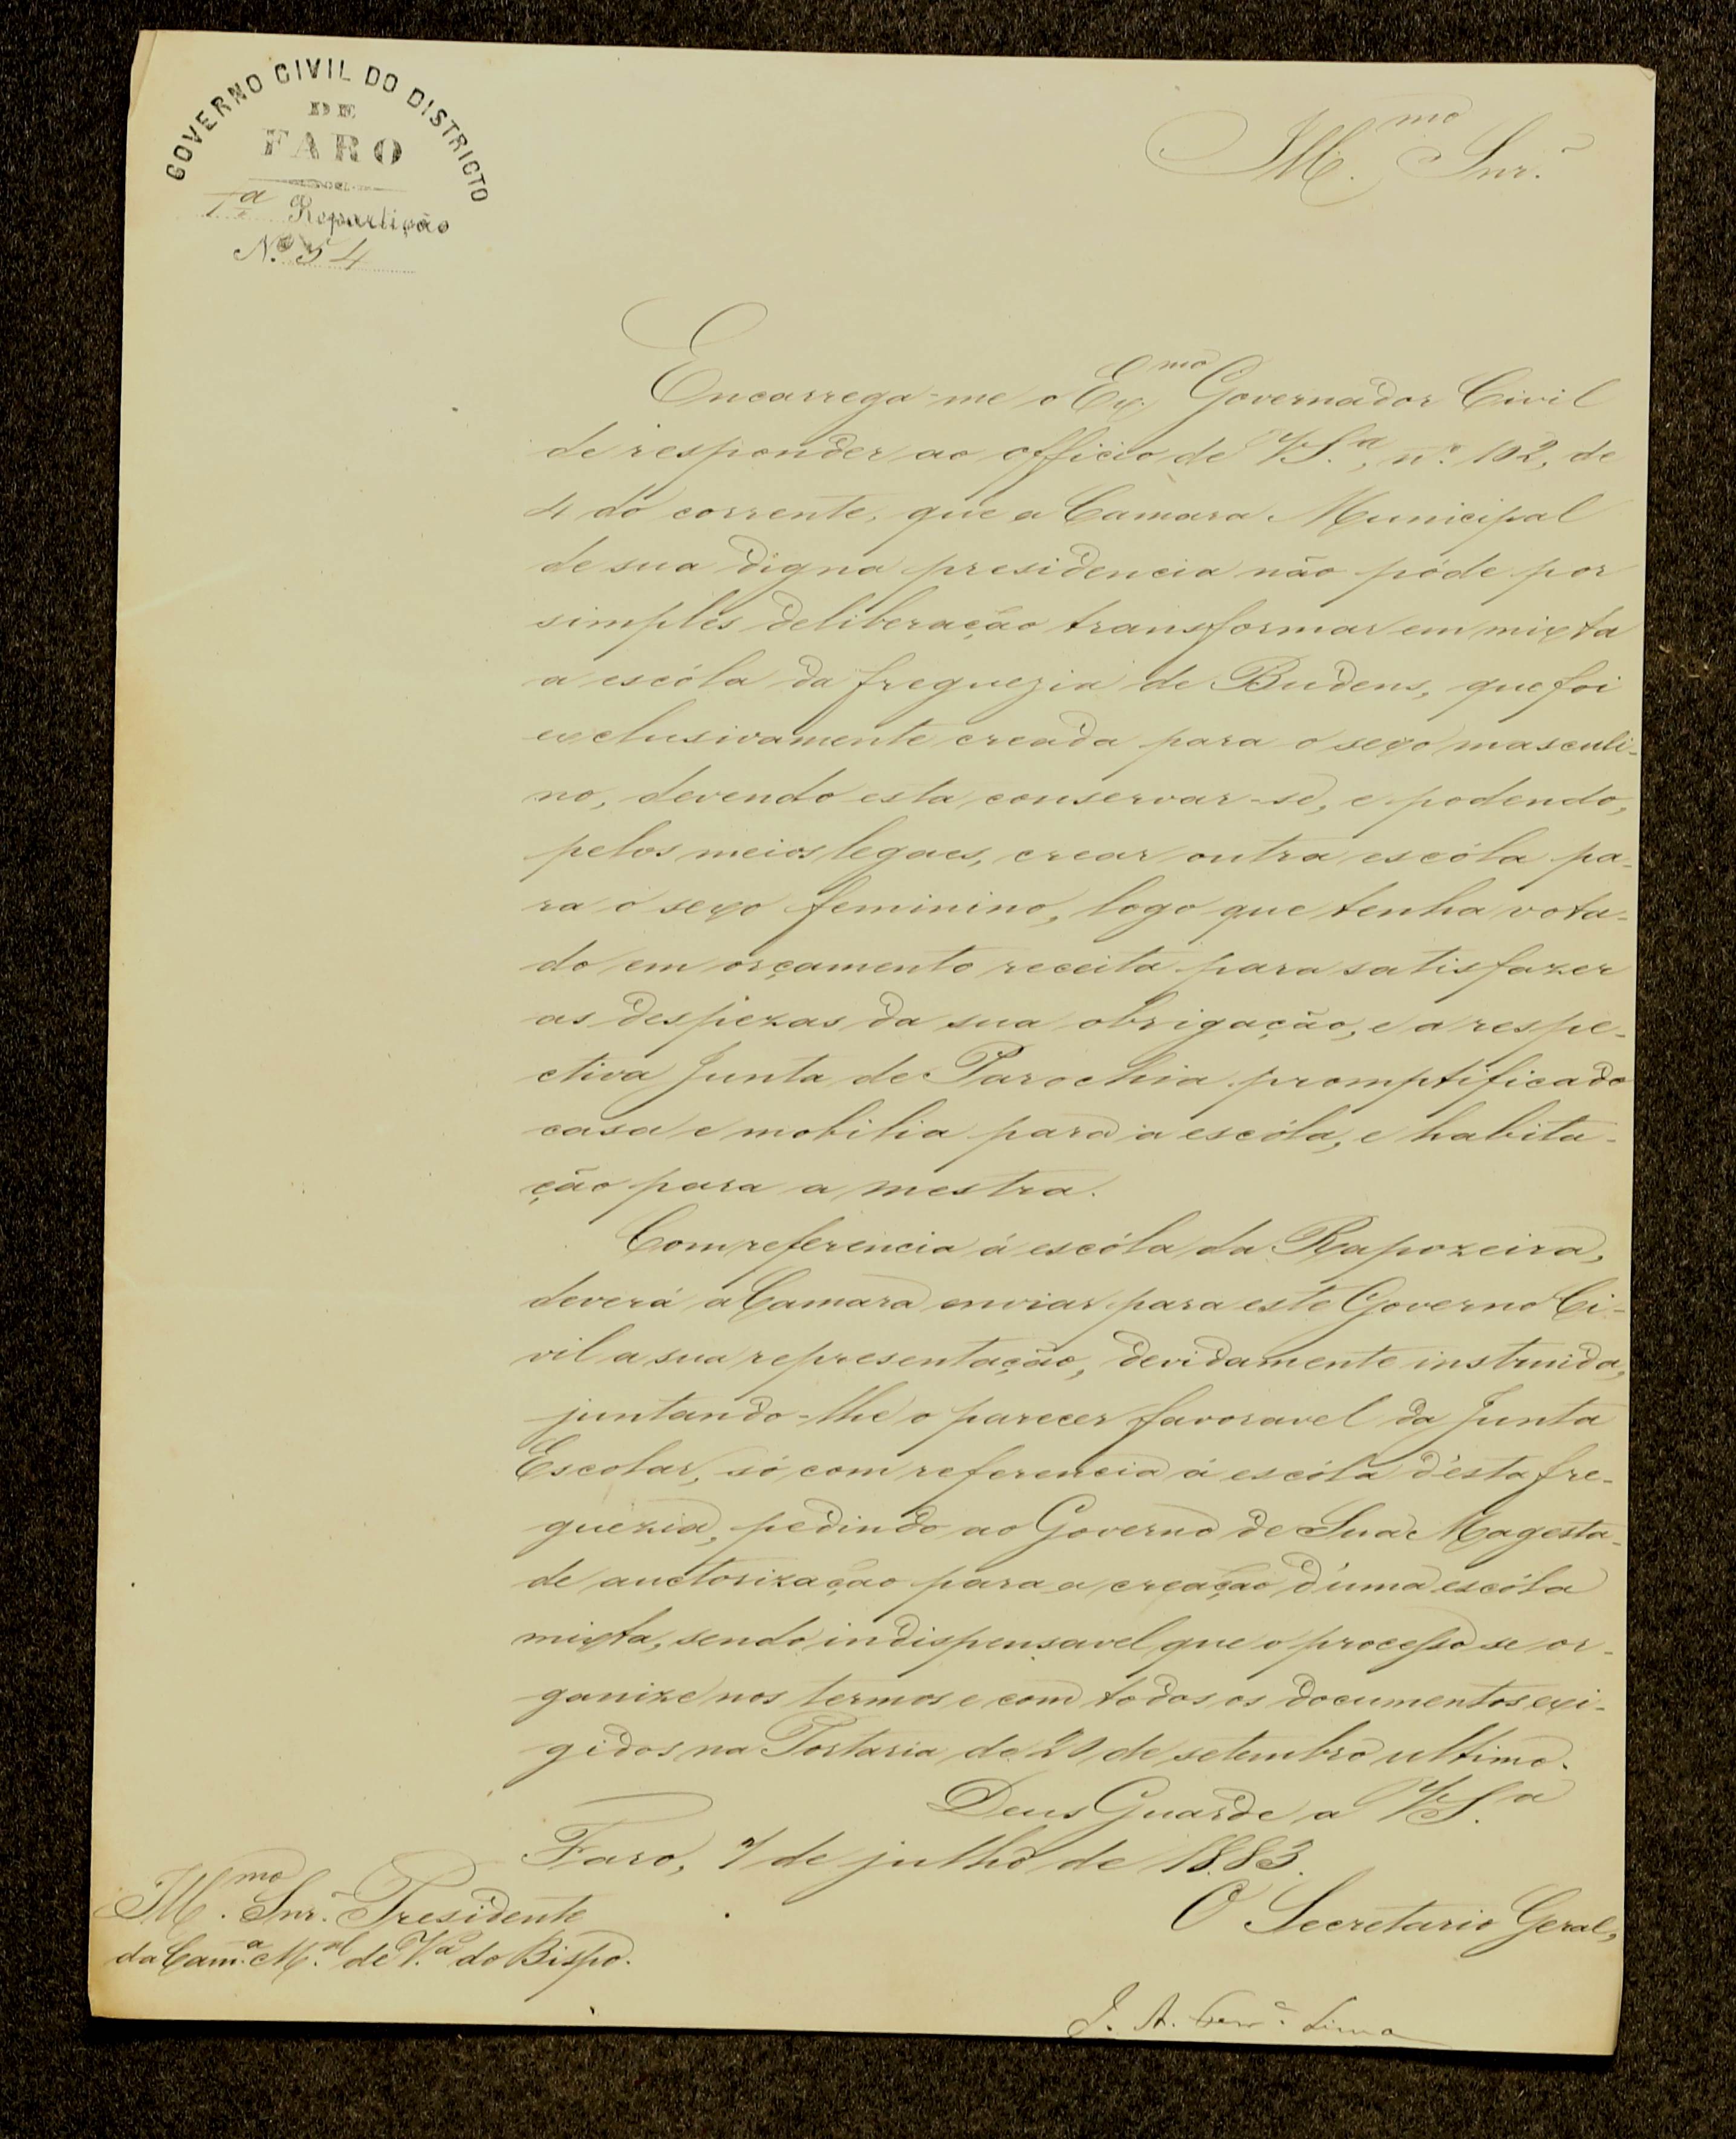 GOVERNO CIVIL DO DISTRICTO
DE
FARO
1.ª Repartição
N.º 54
Ill.mo Snr.
Encarrega-me o Ex.mo Governador Civil
de responder ao officio de V.S.ª, n.º 102, de
4 do corrente, que a Camara Municipal
de sua digna presidencia não póde por
simples deliberação transformar em mixta
a escóla da freguezia de Budens, que foi
exclusivamente creada para o sexo masculi-
no, devendo esta conservar-se, e podendo,
pelos meios legaes, crear outra escóla pa-
ra o sexo feminino, logo que tenha vota-
do em orçamento receita para satisfazer
as despezas da sua obrigação, e a respe-
ctiva Junta de Parochia promptificado
casa e mobilia para a escóla, e habita-
ção para a mestra.
Com referencia á escóla da Rapozeira,
deverá a Camara enviar para este Governo Ci-
vil a sua representação, devidamente instruida,
juntando-lhe o parecer favoravel da Junta
Escolar, só com referencia á escóla d'esta fre-
guezia, pedindo ao Governo de Sua Magesta-
de auctorização para a creação d'uma escóla
mixta, sendo indispensavel que o processo se or-
ganize nos termos e com todos os documentos exi-
gidos na Portaria de 20 de setembro ultimo.
Deus Guarde a V.S.ª
Faro, 7 de julho de 1883.
O Secretario Geral,
Ill.mo Snr. Presidente
da Cam.ª M.al de V.ª do Bispo.
J. A. Lima